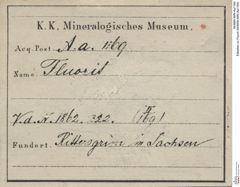 K. K. Mineralogisches Museum.
Acq. Post. A. a. 1769
Name: Fluorit
V. d. N. 1862. 322.
Fundort. Rittersgrün in Sachsen